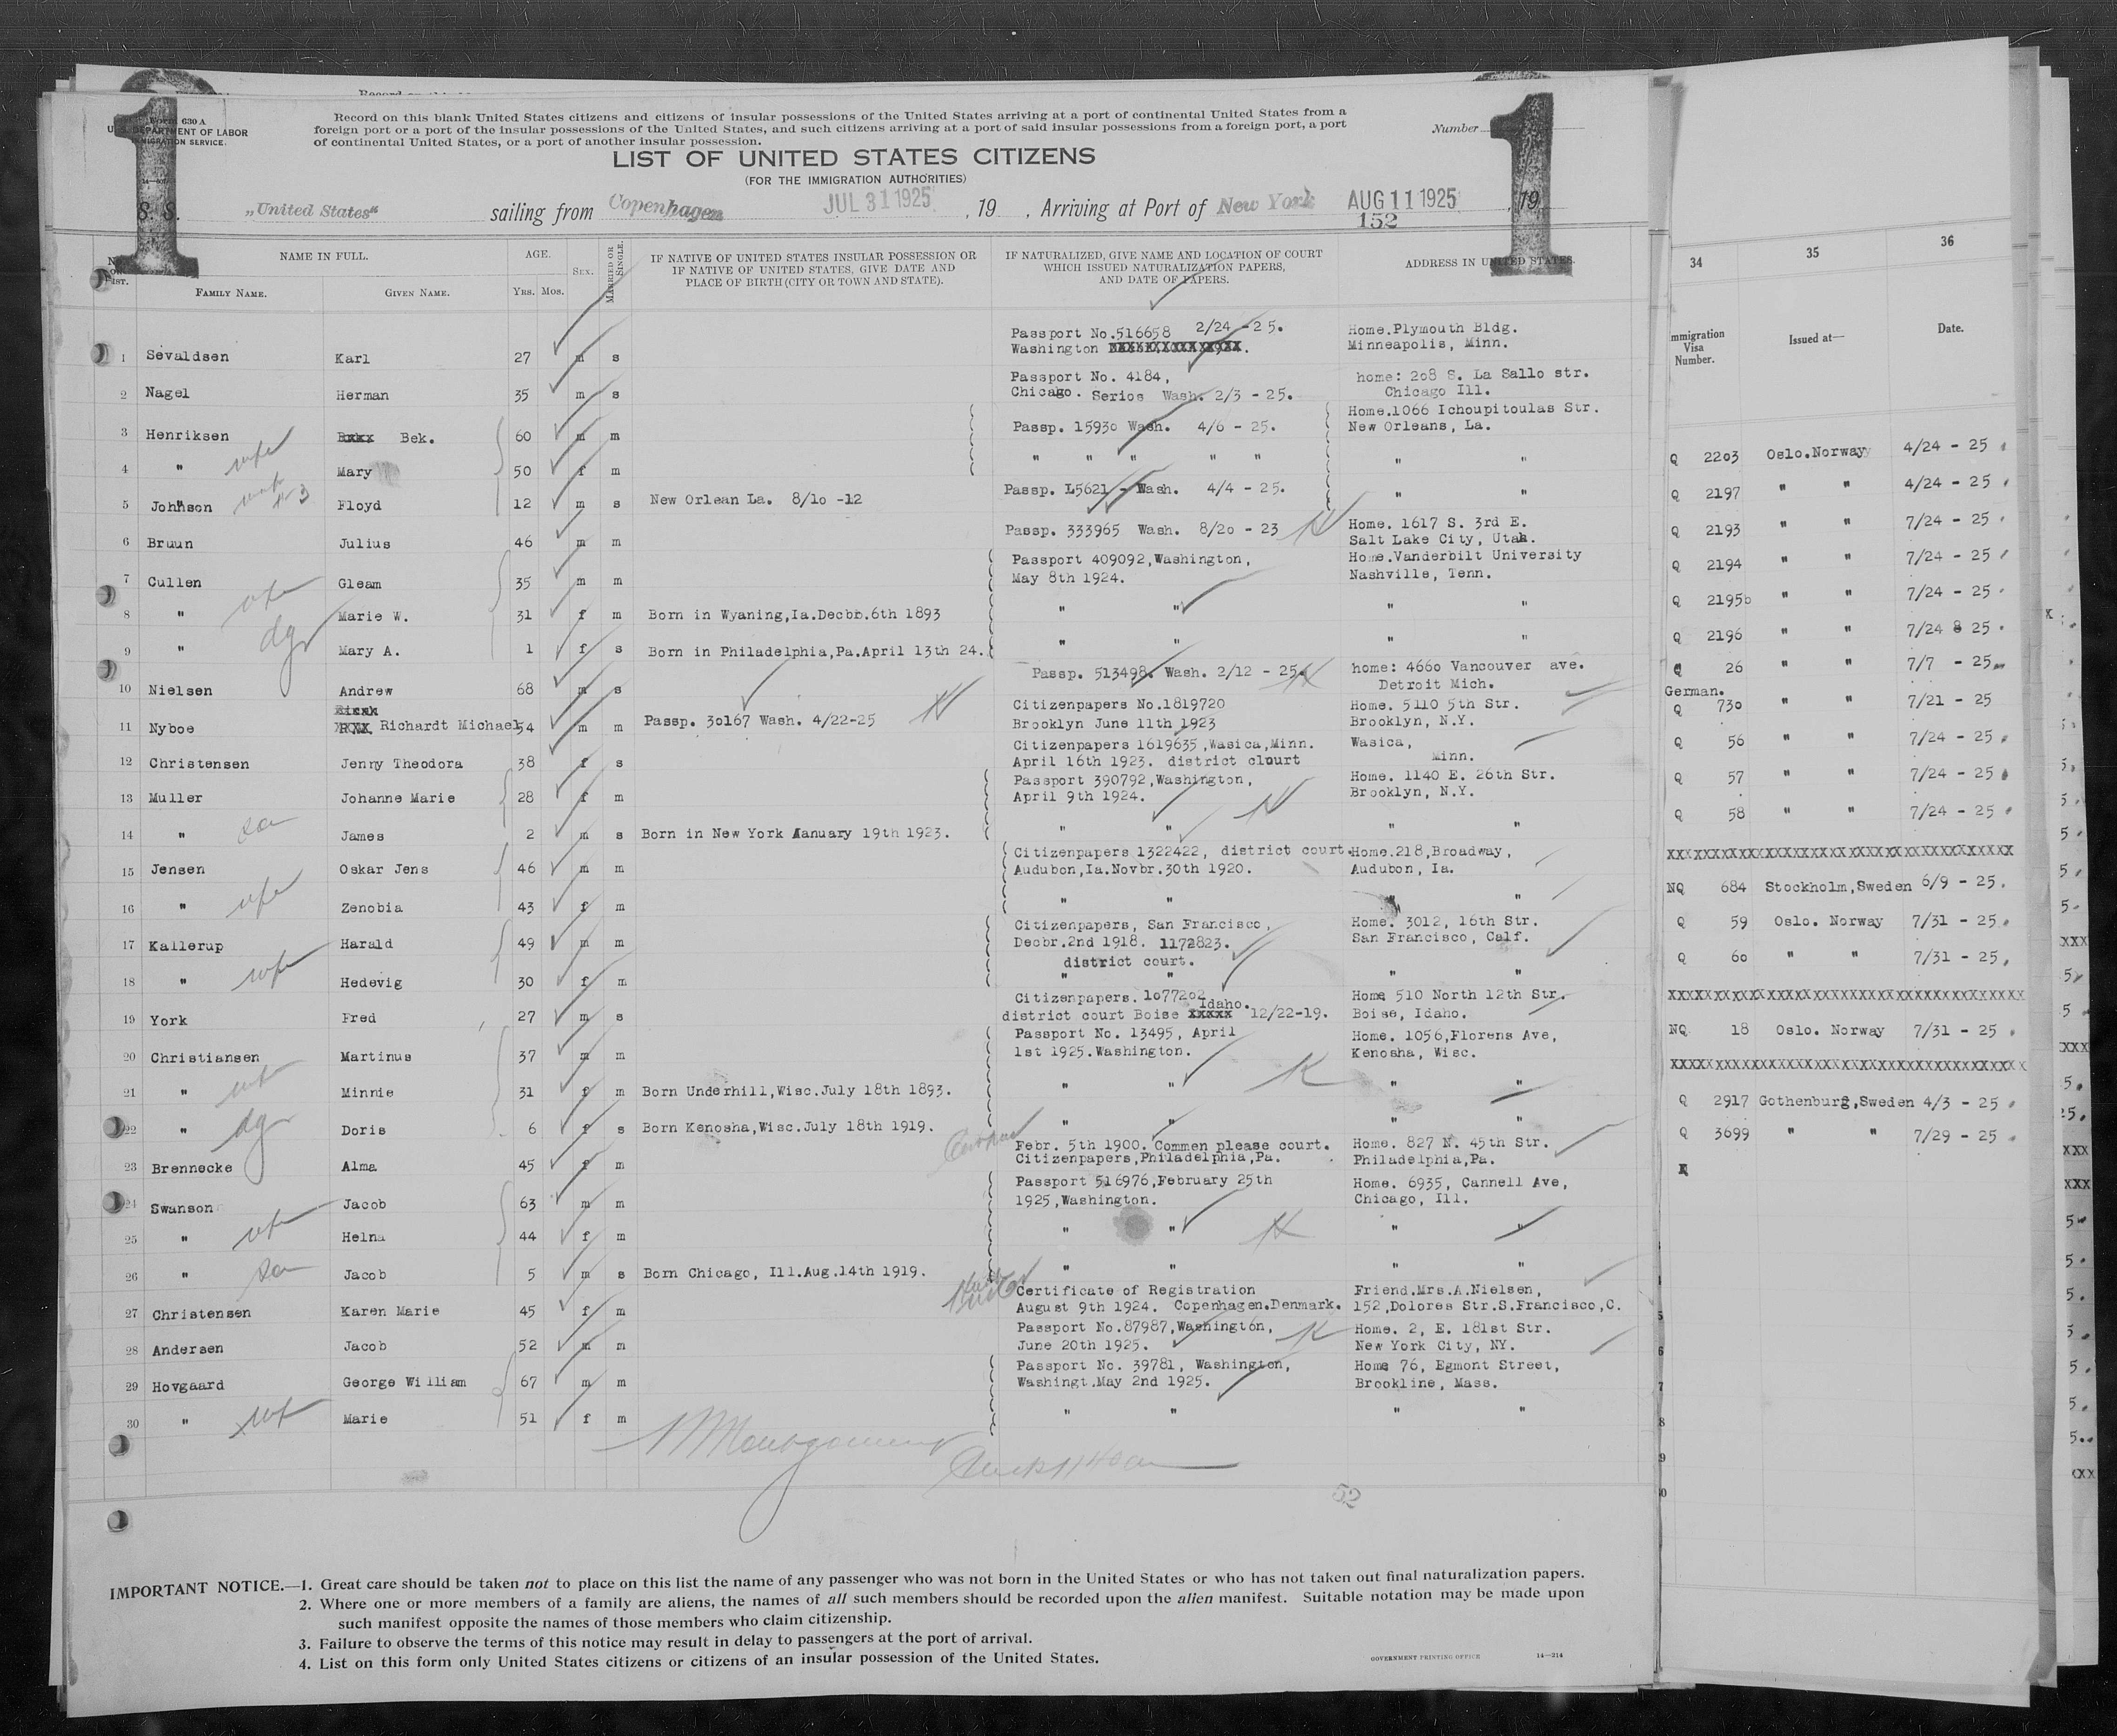 1
1
Form 630 A
U. S. DEPARTMENT OF LABOR
IMMIGRATION SERVICE.
Record on this blank United States citizens and citizens of insular possessions of the United States arriving at a port of continental United States from a
foreign port or a port of the insular possessions of the United States, and such citizens arriving at a port of said insular possessions from a foreign port, a port
of continental United States, or a port of another insular possession.
Number
LIST OF UNITED STATES CITIZENS
(FOR THE IMMIGRATION AUTHORITIES)
S. S. „United States“ sailing from Copenhagen JUL 31 1925 , 19 , Arriving at Port of New York AUG 11 1925 , 19
152
No. on List. NAME IN FULL. AGE. Sex. Married or Single. IF NATIVE OF UNITED STATES INSULAR POSSESSION OR IF NATIVE OF UNITED STATES, GIVE DATE AND PLACE OF BIRTH (CITY OR TOWN AND STATE). IF NATURALIZED, GIVE NAME AND LOCATION OF COURT WHICH ISSUED NATURALIZATION PAPERS, AND DATE OF PAPERS. ADDRESS IN UNITED STATES.
Family Name. Given Name. Yrs. Mos.
1 Sevaldsen Karl 27 m s Passport No.516658 2/24 - 25. Washington Home.Plymouth Bldg. Minneapolis, Minn.
2 Nagel Herman 35 m s Passport No. 4184, Chicago. Series Wash. 2/3 - 25. home: 208 S. La Sallo str. Chicago Ill.
3 Henriksen Bek. 60 m m Passp. 15930 Wash. 4/6 - 25. Home.1066 Ichoupitoulas Str. New Orleans, La.
4 " wife Mary 50 f m " " " " " " "
5 Johnson Floyd 12 m s New Orlean La. 8/10 -12 Passp. L5621 - Wash. 4/4 - 25. " "
6 Bruun Julius 46 m m Passp. 333965 Wash. 8/20 - 23 Home. 1617 S. 3rd E. Salt Lake City, Utah.
7 Cullen Gleam 35 m m Passport 409092,Washington, May 8th 1924. Home.Vanderbilt University Nashville, Tenn.
8 " wife Marie W. 31 f m Born in Wyaning,Ia.Decbr.6th 1893 " " " "
9 " dgr Mary A. 1 f s Born in Philadelphia,Pa.April 13th 24. " " " "
10 Nielsen Andrew 68 m s Passp. 513498. Wash. 2/12 - 25. home: 4660 Vancouver ave. Detroit Mich.
11 Nyboe Richardt Michael 54 m m Passp. 30167 Wash. 4/22-25 Citizenpapers No.1819720 Brooklyn June 11th 1923 Home. 5110 5th Str. Brooklyn, N.Y.
12 Christensen Jenny Theodora 38 f s Citizenpapers 1619635,Wasica,Minn. April 16th 1923. district clourt Wasica, Minn.
13 Muller Johanne Marie 28 f m Passport 390792,Washington, April 9th 1924. Home. 1140 E. 26th Str. Brooklyn, N.Y.
14 " son James 2 m s Born in New York January 19th 1923. " " " "
15 Jensen Oskar Jens 46 m m Citizenpapers 1322422, district court. Audubon,Ia.Novbr.30th 1920. Home.218,Broadway, Audubon, Ia.
16 " wife Zenobia 43 f m " " " "
17 Kallerup Harald 49 m m Citizenpapers, San Francisco, Decbr.2nd 1918. 1172823. district court. Home. 3012, 16th Str. San Francisco, Calf.
18 " wife Hedevig 30 f m " " " "
19 York Fred 27 m s Citizenpapers. 1077202 district court Boise Idaho. 12/22-19. Home 510 North 12th Str. Boise, Idaho.
20 Christiansen Martinus 37 m m Passport No. 13495, April 1st 1925.Washington. Home. 1056,Florens Ave, Kenosha, Wisc.
21 " wife Minnie 31 f m Born Underhill,Wisc.July 18th 1893. " " " "
22 " dgr Doris 6 f s Born Kenosha,Wisc.July 18th 1919. " " " "
23 Brennecke Alma 45 f m Febr. 5th 1900. Commen please court. Citizenpapers,Philadelphia,Pa. Home. 827 N. 45th Str. Philadelphia,Pa.
24 Swanson Jacob 63 m m Passport 516976,February 25th 1925,Washington. Home. 6935, Cannell Ave, Chicago, Ill.
25 " wife Helna 44 f m " " " "
26 " son Jacob 5 m s Born Chicago, Ill.Aug.14th 1919. " " " "
27 Christensen Karen Marie 45 f m Certificate of Registration August 9th 1924. Copenhagen.Denmark. Friend.Mrs.A.Nielsen, 152,Dolores Str.S.Francisco,C.
28 Andersen Jacob 52 m m Passport No.87987,Washington, June 20th 1925. Home. 2, E. 181st Str. New York City, NY.
29 Hovgaard George William 67 m m Passport No. 39781, Washington, Washingt.May 2nd 1925. Home 76, Egmont Street, Brookline, Mass.
30 " wife Marie 51 f m " " " "
52
IMPORTANT NOTICE.—1. Great care should be taken not to place on this list the name of any passenger who was not born in the United States or who has not taken out final naturalization papers.
2. Where one or more members of a family are aliens, the names of all such members should be recorded upon the alien manifest. Suitable notation may be made upon
such manifest opposite the names of those members who claim citizenship.
3. Failure to observe the terms of this notice may result in delay to passengers at the port of arrival.
4. List on this form only United States citizens or citizens of an insular possession of the United States.
GOVERNMENT PRINTING OFFICE 14—214
34 35 36
Immigration Visa Number. Issued at— Date.
Q 2203 Oslo.Norway 4/24 - 25
Q 2197 " " 4/24 - 25
Q 2193 " " 7/24 - 25
Q 2194 " " 7/24 - 25
Q 2195b " " 7/24 - 25
Q 2196 " " 7/24 8 25
Q 26 " " 7/7 - 25
German.
Q 730 " " 7/21 - 25
Q 56 " " 7/24 - 25
Q 57 " " 7/24 - 25
Q 58 " " 7/24 - 25
NQ 684 Stockholm,Sweden 6/9 - 25.
Q 59 Oslo. Norway 7/31 - 25
Q 60 " " 7/31 - 25
NQ 18 Oslo. Norway 7/31 - 25
Q 2917 Gothenburg,Sweden 4/3 - 25
Q 3699 " " 7/29 - 25